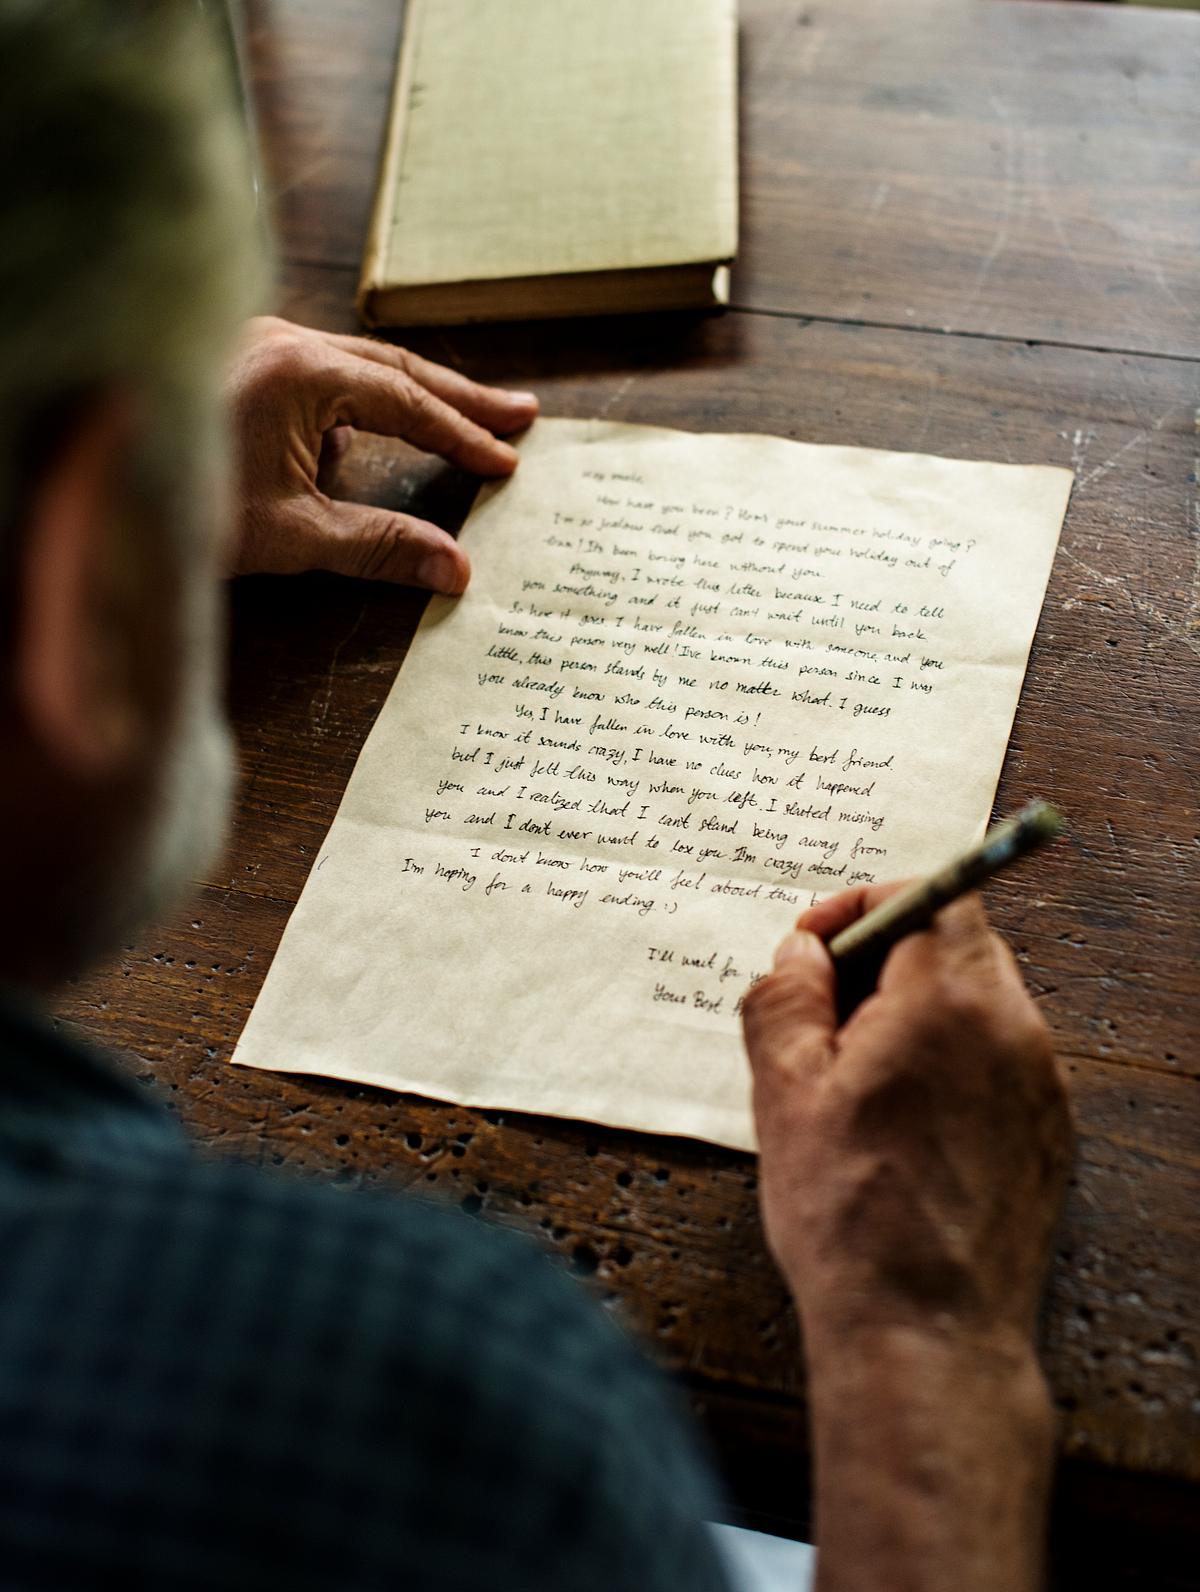 Hey mate,
How have you been? How's your summer holiday going?
I'm so jealous that you got to spend your holiday out of
town! It's been boring here without you.
Anyway, I wrote this letter because I need to tell
you something and it just can't wait until you back.
So here it goes, I have fallen in love with someone, and you
know this person very well! I've known this person since I was
little, this person stands by me no matter what. I guess
you already know who this person is!
Yes, I have fallen in love with you, my best friend.
I know it sounds crazy, I have no clues how it happened
but I just felt this way when you left. I started missing
you and I realized that I can't stand being away from
you and I don't ever want to lose you. I'm crazy about you.
I don't know how you'll feel about this
I'm hoping for a happy ending :)
I'll wait for
Your Best